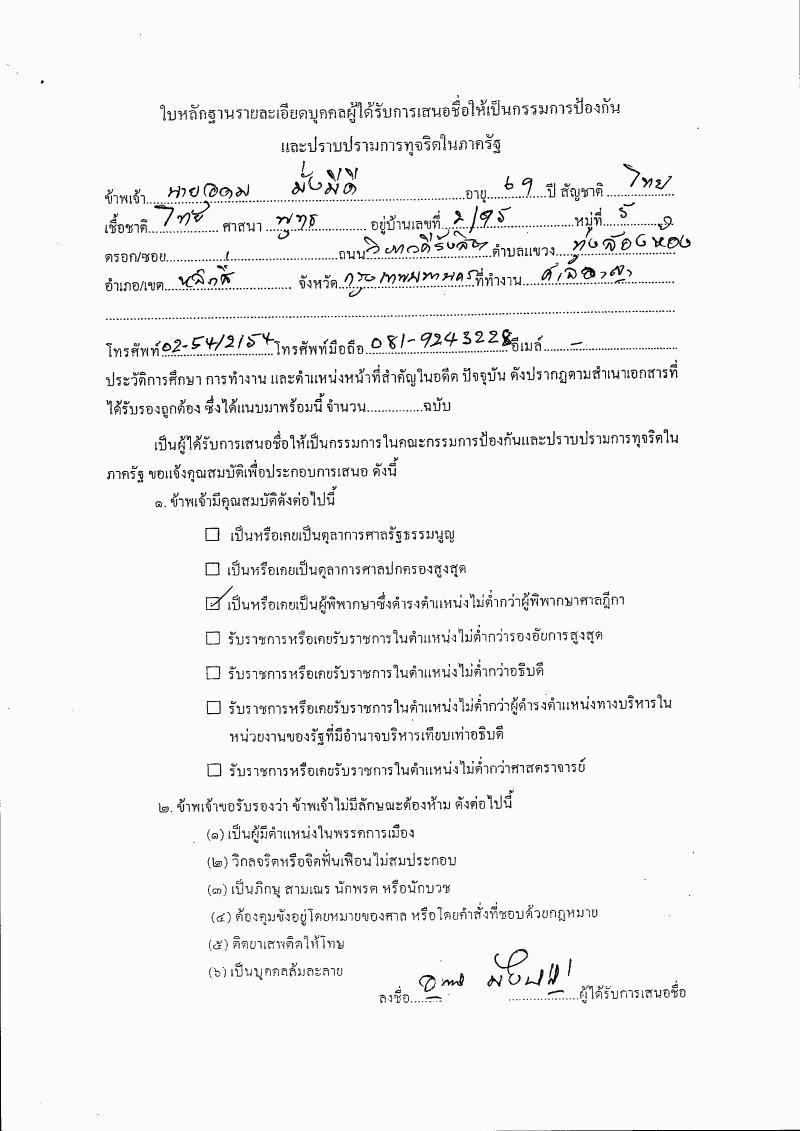 ใบหลักฐานรายละเอียดบุคคลผู้ได้รับการเสนอชื่อให้เป็นกรรมการป้องกัน
และปราบปรามการทุจริตในภาครัฐ
ข้าพเจ้า นายอุดม มั่งมีดี อายุ ๖๙ ปี สัญชาติ ไทย
เชื้อชาติ ไทย ศาสนา พุทธ อยู่บ้านเลขที่ 2/95 หมู่ที่ 5
ตรอก/ซอย ถนน วิภาวดีรังสิต ตำบล/แขวง ทุ่งสองห้อง
อำเภอ/เขต หลักสี่ จังหวัด กรุงเทพมหานคร ที่ทำงาน ศาลฎีกา
โทรศัพท์ 02-5412154 โทรศัพท์มือถือ 081-9243228 อีเมล์ -
ประวัติการศึกษา การทำงาน และตำแหน่งหน้าที่สำคัญในอดีต ปัจจุบัน ดังปรากฏตามสำเนาเอกสารที่
ได้รับรองถูกต้อง ซึ่งได้แนบมาพร้อมนี้ จำนวน...............ฉบับ
เป็นผู้ได้รับการเสนอชื่อให้เป็นกรรมการในคณะกรรมการป้องกันและปราบปรามการทุจริตใน
ภาครัฐ ขอแจ้งคุณสมบัติเพื่อประกอบการเสนอ ดังนี้
๑. ข้าพเจ้ามีคุณสมบัติดังต่อไปนี้
☐ เป็นหรือเคยเป็นตุลาการศาลรัฐธรรมนูญ
☐ เป็นหรือเคยเป็นตุลาการศาลปกครองสูงสุด
☑ เป็นหรือเคยเป็นผู้พิพากษาซึ่งดำรงตำแหน่งไม่ต่ำกว่าผู้พิพากษาศาลฎีกา
☐ รับราชการหรือเคยรับราชการในตำแหน่งไม่ต่ำกว่ารองอัยการสูงสุด
☐ รับราชการหรือเคยรับราชการในตำแหน่งไม่ต่ำกว่าอธิบดี
☐ รับราชการหรือเคยรับราชการในตำแหน่งไม่ต่ำกว่าผู้ดำรงตำแหน่งทางบริหารใน
หน่วยงานของรัฐที่มีอำนาจบริหารเทียบเท่าอธิบดี
☐ รับราชการหรือเคยรับราชการในตำแหน่งไม่ต่ำกว่าศาสตราจารย์
๒. ข้าพเจ้าขอรับรองว่า ข้าพเจ้าไม่มีลักษณะต้องห้าม ดังต่อไปนี้
(๑) เป็นผู้มีตำแหน่งในพรรคการเมือง
(๒) วิกลจริตหรือจิตฟั่นเฟือนไม่สมประกอบ
(๓) เป็นภิกษุ สามเณร นักพรต หรือนักบวช
(๔) ต้องคุมขังอยู่โดยหมายของศาล หรือโดยคำสั่งที่ชอบด้วยกฎหมาย
(๕) ติดยาเสพติดให้โทษ
(๖) เป็นบุคคลล้มละลาย
ลงชื่อ ผู้ได้รับการเสนอชื่อ